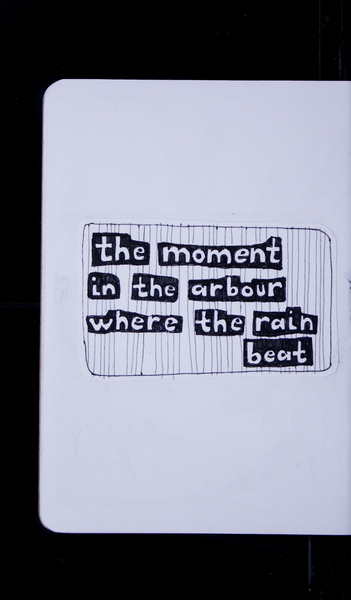 the moment
in the arbour
where the rain
beat